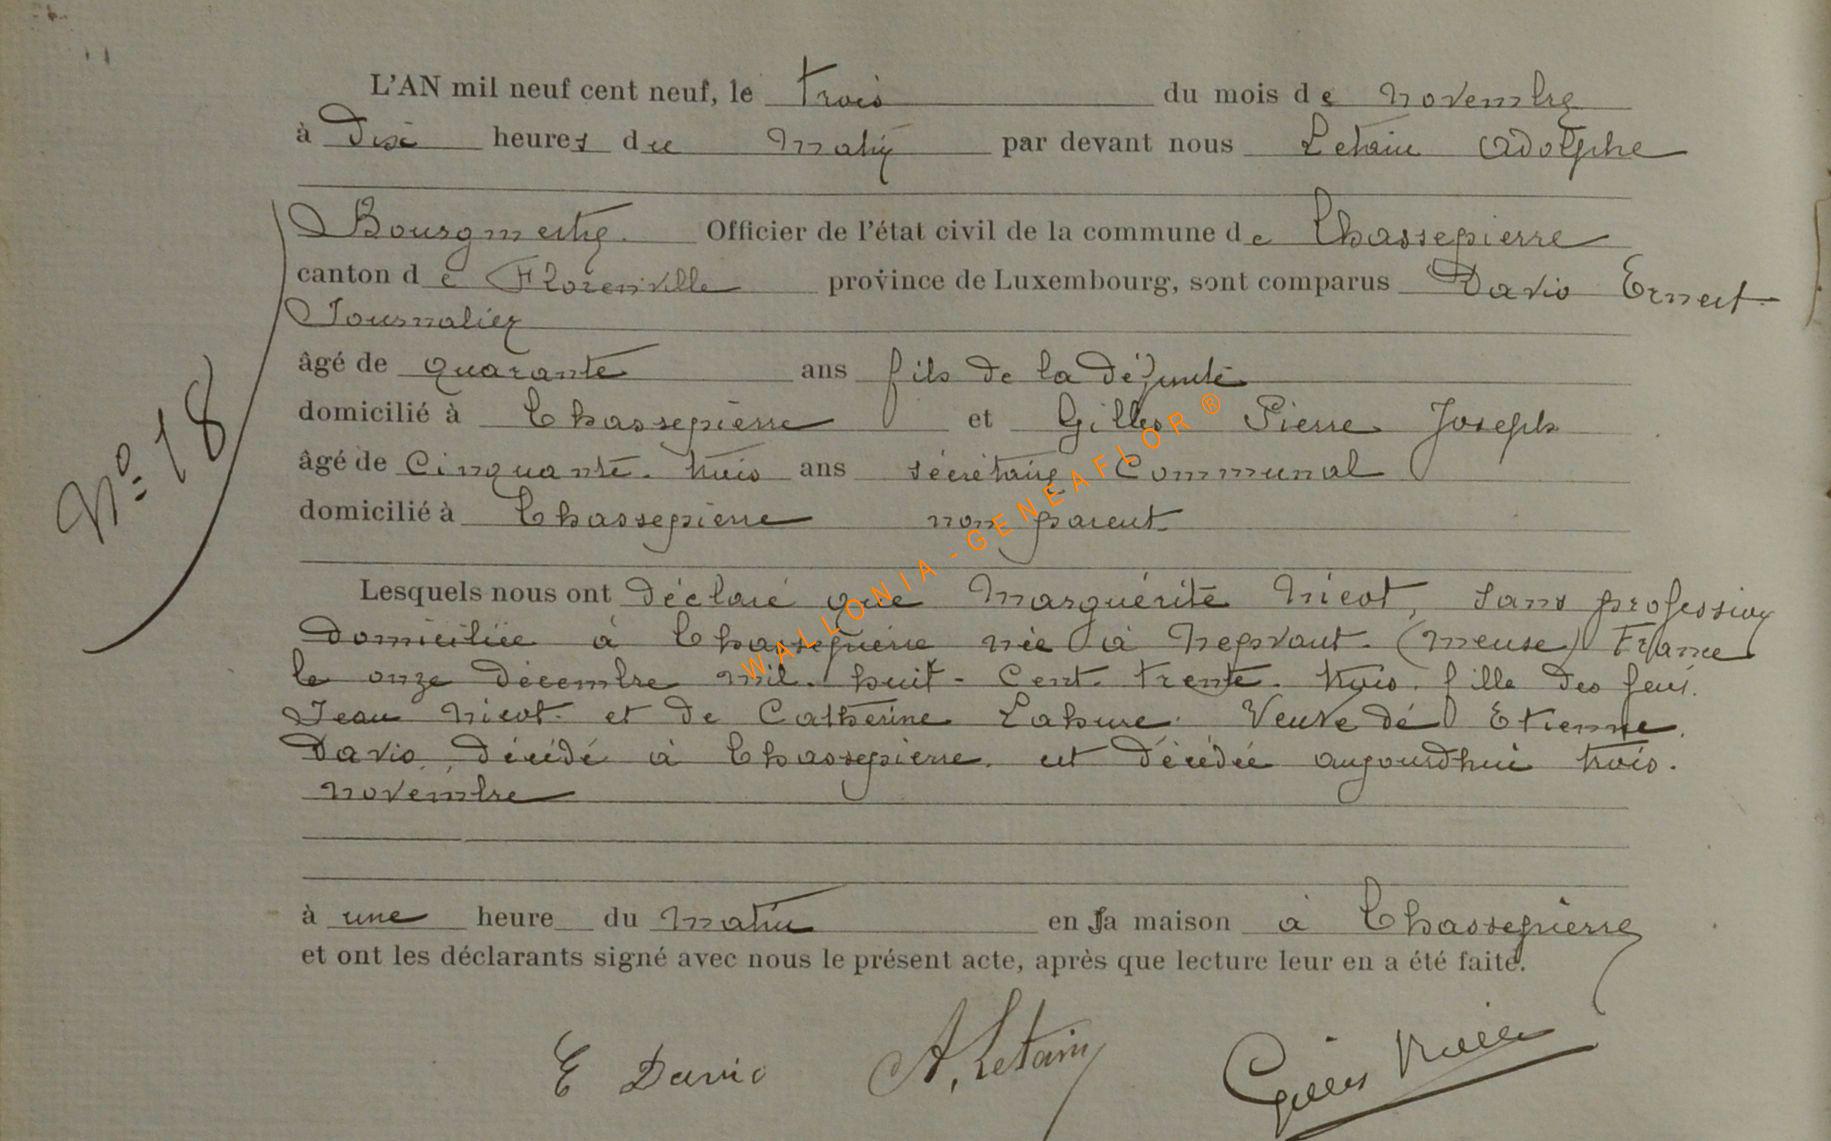 L'AN mil neuf cent neuf, le trois du mois de novembre
à Dix heures du Matin par devant nous Letain Adolphe
Bourgmestre Officier de l'état civil de la commune de Chassepierre
canton de Florenville province de Luxembourg, sont comparus Davio Ernest
Journalier
âgé de quarante ans fils de la défunte
domicilié à Chassepierre et Gilles Pierre Joseph
âgé de Cinquante-trois ans sécrétaire Communal
domicilié à Chassepierre non parent
N° 18
Lesquels nous ont déclaré que Marguérite Nicot, sans profession
domiciliée à Chassepierre née à Nepvant (Meuse) France
le onze décembre mil huit-cent-trente-trois, fille des feus
Jean Nicot et de Catherine Lahure Veuve de Etienne
Davio décédé à Chassepierre est décédée aujourdhui trois
novembre
à une heure du Matin en sa maison à Chassepierre
et ont les déclarants signé avec nous le présent acte, après que lecture leur en a été faite.
E Davio A. Letain Gilles
WALLONIA-GENEAFLOR ®